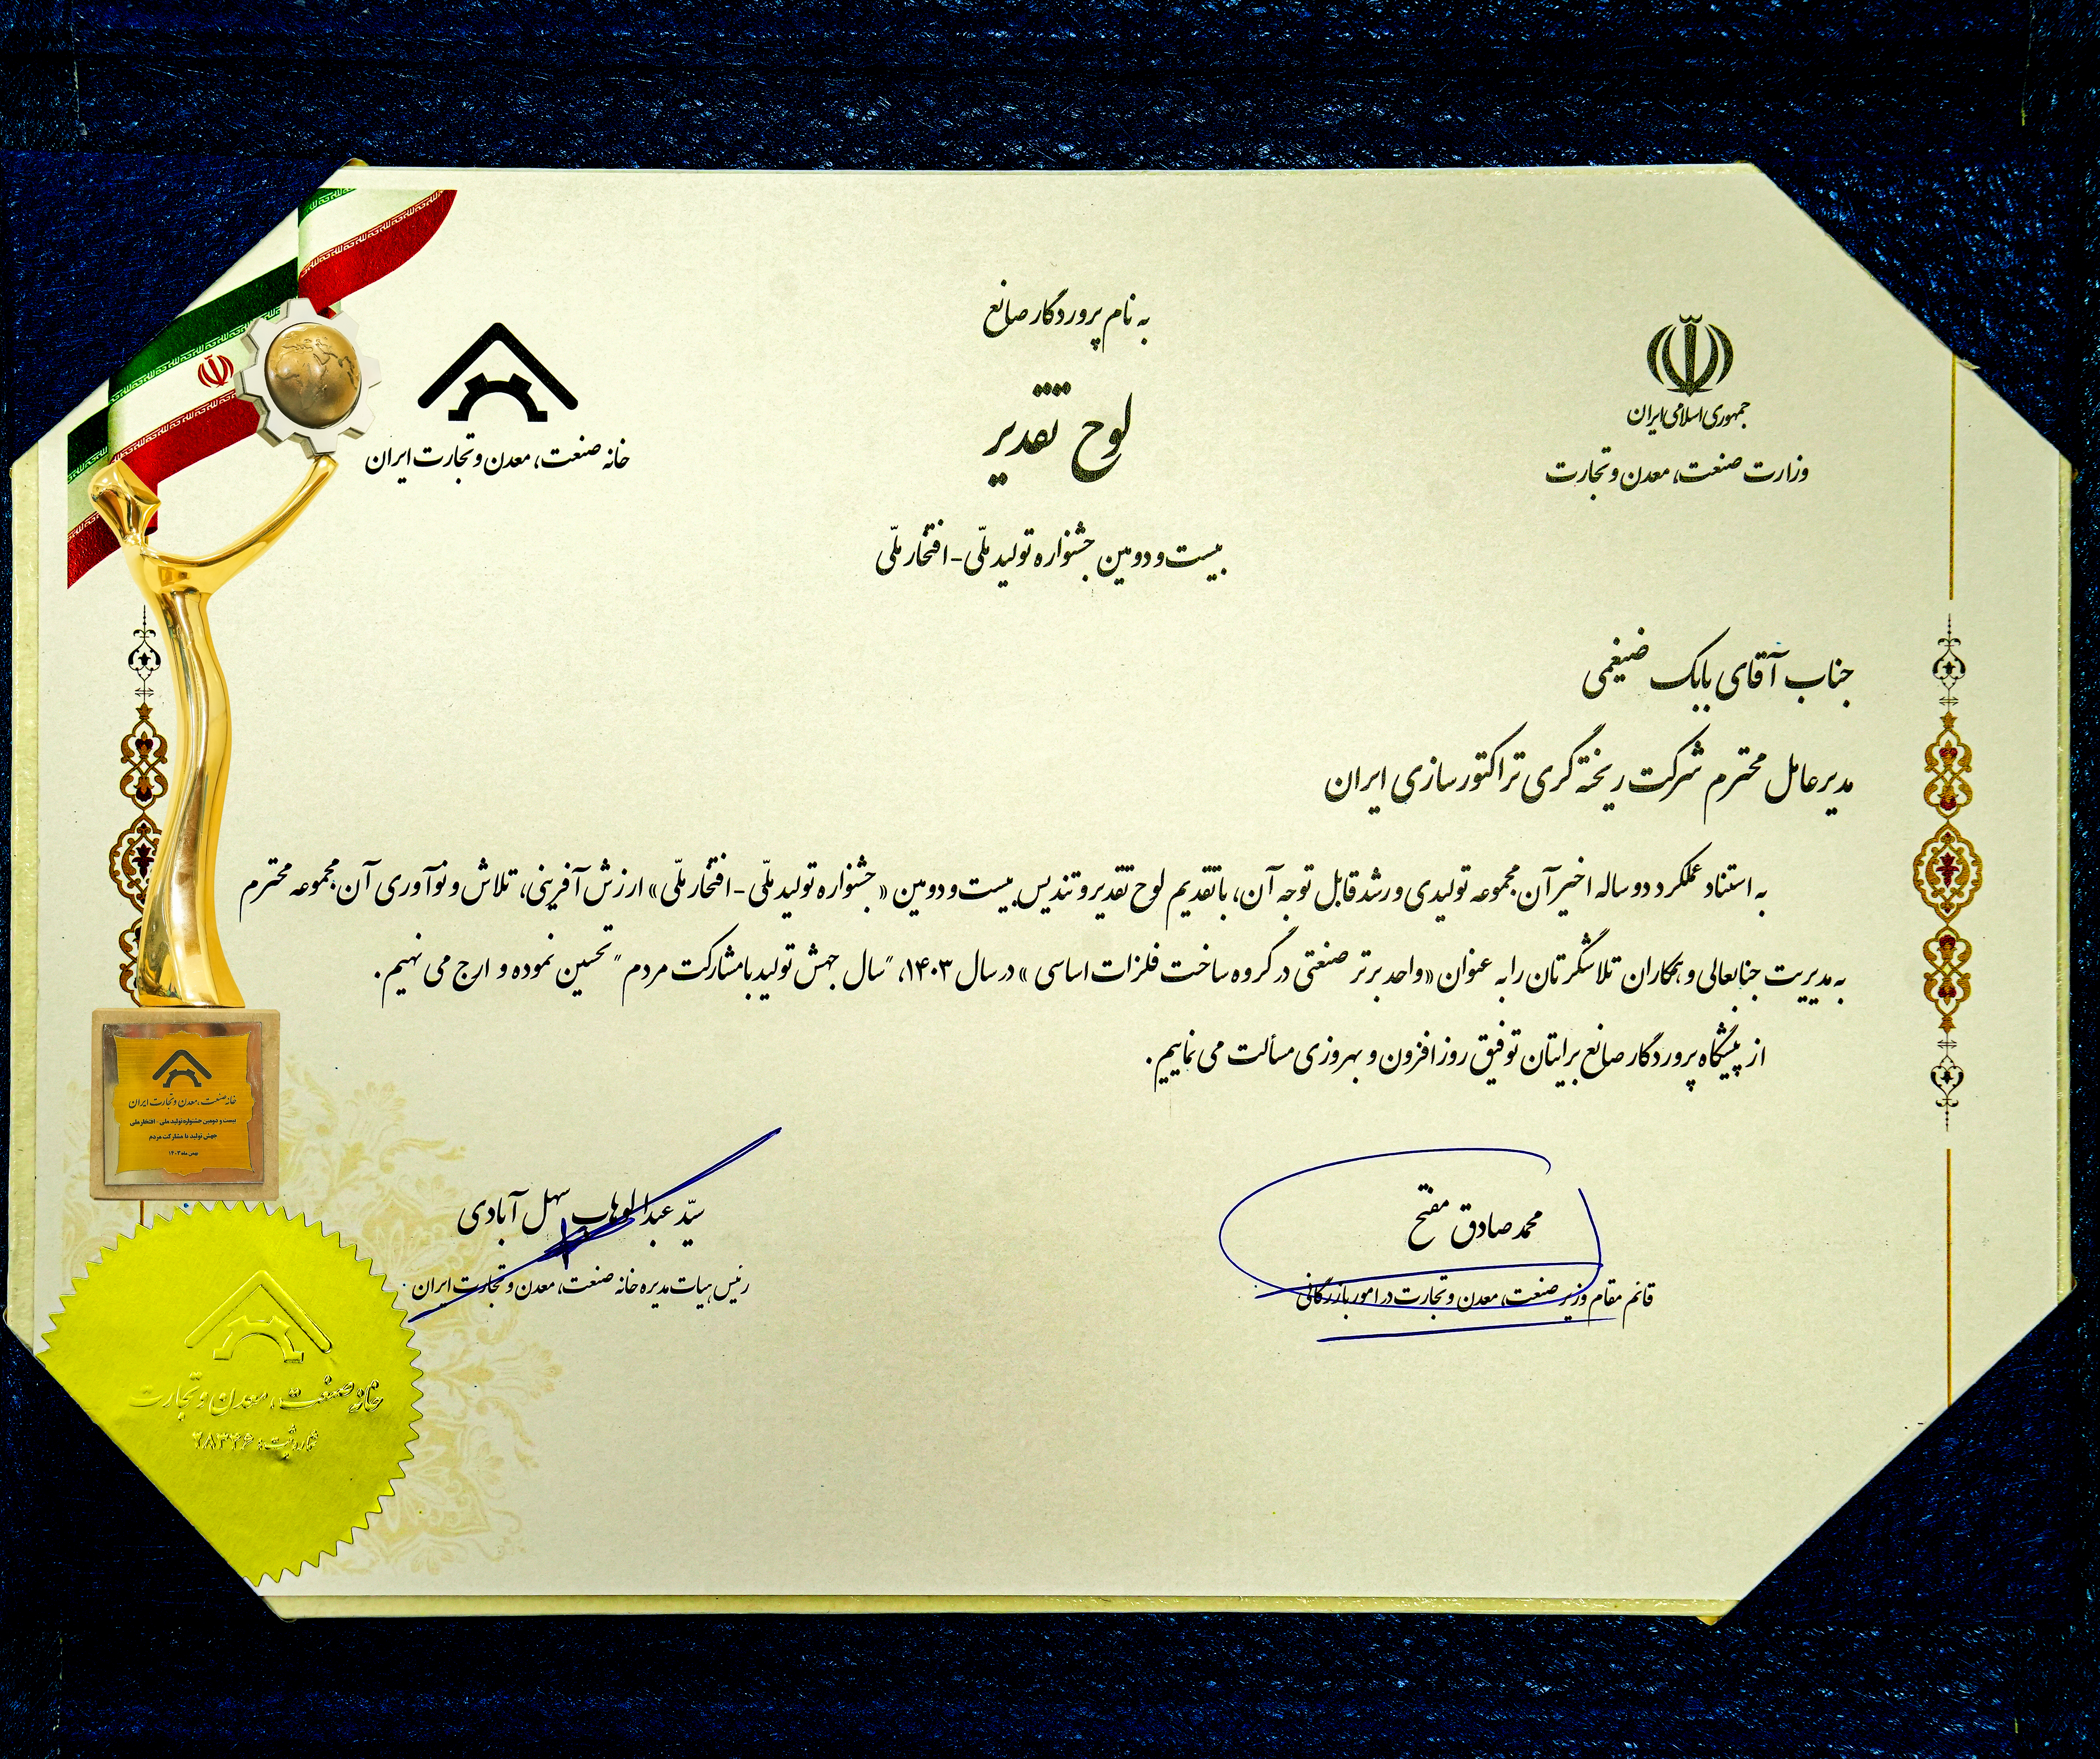 به نام پروردگار صانع
لوح تقدیر
بیست و دومین جشنواره تولید ملّی - افتخار ملّی
جمهوری اسلامی ایران
وزارت صنعت، معدن و تجارت
خانه صنعت، معدن و تجارت ایران
جناب آقای بابک ضیغمی
مدیرعامل محترم شرکت ریخته گری تراکتورسازی ایران
به استناد عملکرد دو ساله اخیر آن مجموعه تولیدی و رشد قابل توجه آن، با تقدیم لوح تقدیر و تندیس بیست و دومین «جشنواره تولید ملّی - افتخار ملّی» ارزش آفرینی، تلاش و نوآوری آن مجموعه محترم
به مدیریت جنابعالی و همکاران تلاشگرتان را به عنوان «واحد برتر صنعتی در گروه ساخت فلزات اساسی» در سال ۱۴۰۳، "سال جهش تولید با مشارکت مردم" تحسین نموده و ارج می نهیم.
از پیشگاه پروردگار صانع برایتان توفیق روزافزون و بهروزی مسألت می نماییم.
محمد صادق مفتح
قائم مقام وزیر صنعت، معدن و تجارت در امور بازرگانی
سیّد عبدالوهاب سهل آبادی
رئیس هیات مدیره خانه صنعت، معدن و تجارت ایران
خانه صنعت، معدن و تجارت ایران
بیست و دومین جشنواره تولید ملی - افتخار ملی
جهش تولید با مشارکت مردم
بهمن ماه ۱۴۰۳
خانه صنعت، معدن و تجارت
شماره ثبت: